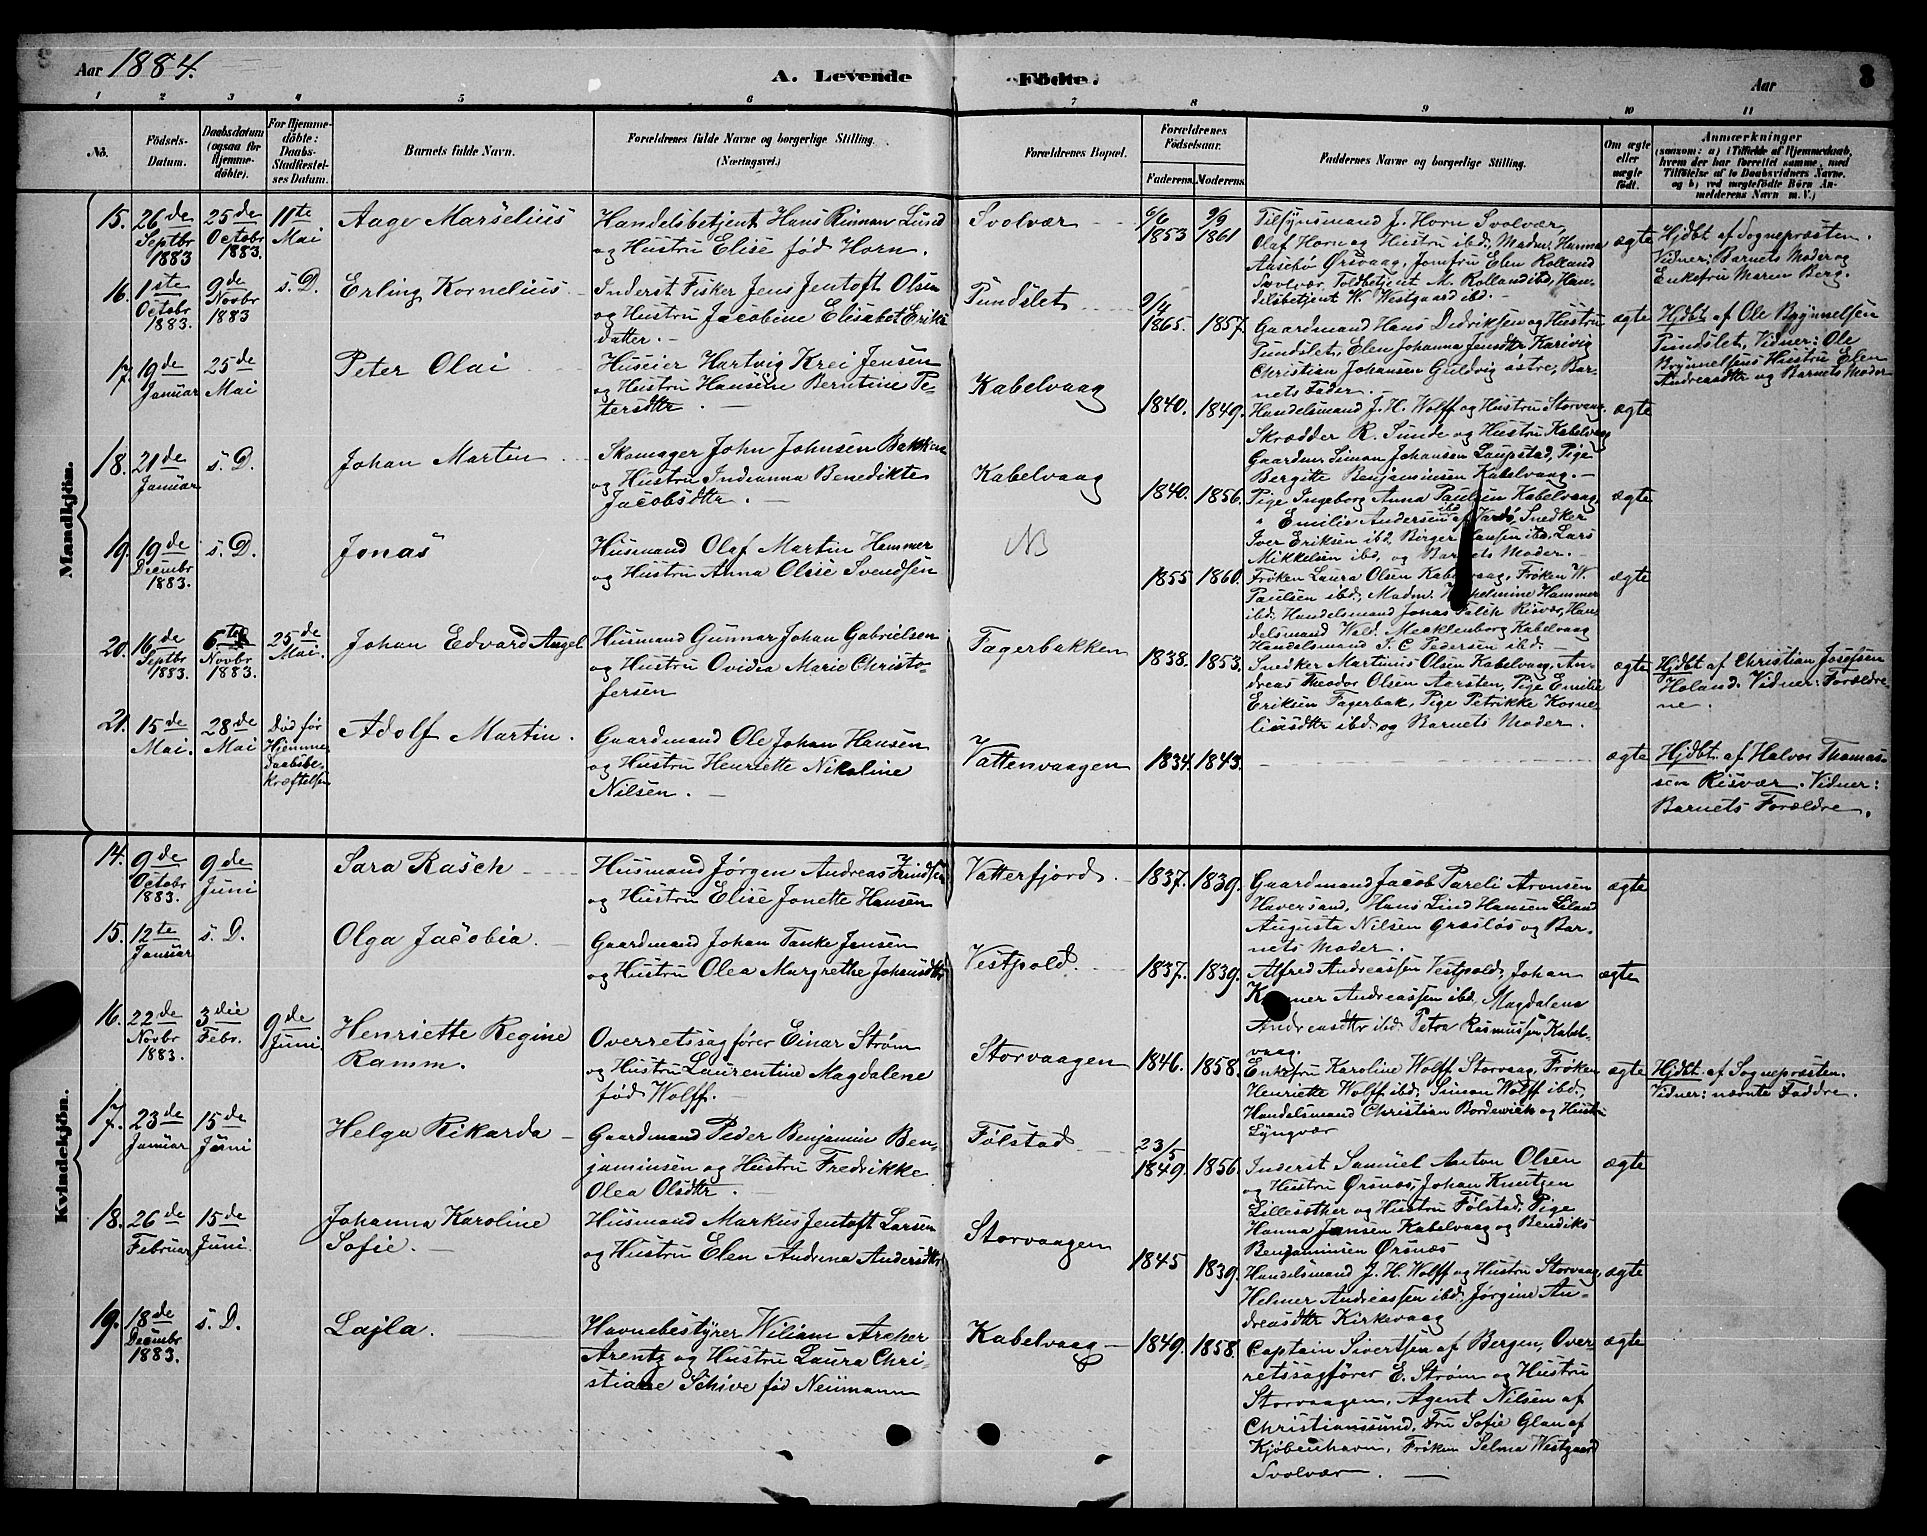 Aar 1884.
A. Levende Födte.
Aar
8
1 2 3 4 5 6 7 8 9 10 11
No.
Födsels-Datum.
Daabsdatum (ogsaa for Hjemme-döbte).
For Hjemme-döbte: Daabs-Stadfæstel-ses Datum.
Barnets fulde Navn.
Forældrenes fulde Navne og borgerlige Stilling. (Næringsvei.)
Forældrenes Bopæl.
Forældrenes Födselsaar.
Faderens. Moderens.
Faddernes Navne og borgerlige Stilling.
Om ægte eller uægte født.
Anmærkninger
(saasom: a) i Tilfælde af Hjemmedaab, hvem der har forrettet samme, med Tilföielse af to Daabsvidners Navne, og b) ved uægtefödte Börn An-melderens Navn m. V.)
Mandkjön.
15. 26de Septbr 1883
25de Octobr 1883.
11te Mai
Aage Marselius
Handelsbetjent Hans Rinnan Lund
og Hustru Elise fød Horn.
Svolvær
6/6 1853
9/9 1861
Tilsynsmand J. Horn Svolvær,
Olaf Horn og Hustru ibd. Madm. Hanna
Ørsvaag, Jomfru Elen Rolland
Svolvær Toldbetjent M. Rolland ibd, Han-
delsbetjent W. Westgaard ibd.
ægte
Hjdbt af Sognepræsten.
Vidner: Barnets Moder og
Enkefru Maren Berg.
16. 1ste Octobr 1883.
9de Novbr 1883
s. D.
Erling Kornelius
Inderst Fisker Jens Jentoft Olsen
og Hustru Jacobine Elisabet Eriks
datter.
Pundslet
9/4 1865.
1857.
Gaardmand Hans Didriksen og Hustru
Pundslet, Elen Johanna Jensdtr
Christian Johansen Guldvig østre, Bar-
nets Fader.
ægte
Hjdbt af Ole Brynnelsen
Pundslet, Vidner: Ole
Brynnelsens Hustru Elen
Andreasdtr og Barnets Moder
17. 19de Januar
25de Mai
Peter Olai
Huseier Hartvig Krei Jensen
og Hustru Hansine Berntine Pe-
tersdtr.
Kabelvaag
1840. 1849.
Handelsmand J. H. Wolff og Hustru Storvaag.
Skrædder R. Sunde og Hustru Kabelvaag
Gaardm. Simon Johansen Laupstad, Pige
Bergitte Benjaminsen Kabelvaag.
ægte
18. 21de Januar
s. D.
Johan Martin
Skomager John Johnsen Bakken
og Hustru Indianna Benedikte
Jacobsdtr.
Kabelvaag
1840. 1856.
Pige Ingeborg Anna Paulsen Kabelvaag,
" Emilie Andersen ibd af Vardö, Snedker
Iver Eriksen ibd. Birger Hansen ibd. Lars
Mikkelsen ibd. og Barnets Moder.
ægte
19. 19de Decimbr 1883.
s. D.
Jonas
Husmand Olaf Martin Hammer
og Hustru Anna Olise Svendsen
NB
1855 1860.
Frøken Laura Olsen Kabelvaag, Frøken W.
Paulsen ibd, Madm. Hammer
ibd. Handelsmand Jonas Falch Risvær, Han-
delsmand Wald. Mecklenborg Kabelvaag
Handelsmand J. C. Pedersen ibd.
ægte
20. 16de Septbr 1883.
6te Novbr 1883.
25de Mai.
Johan Edvard Angel
Husmand Gunnar Johan Gabrielsen
og Hustru Ovidia Marie Christo-
fersen
Fagerbakken
1838. 1853.
Snedker Martinus Olsen Kabelvaag, An-
dreas Theodor Olsen Aarsten, Pige Emilie
Eriksen Fagerbak, Pige Petrikke Korne-
liusdtr ibd. og Barnets Moder.
ægte
Hjdbt af Christian Josefsen
Holand. Vidner: Forældre-
ne.
21. 15de Mai.
28de Mai
Död før Hjemme daabsbe-kræftelsen
Adolf Martin.
Gaardmand Ole Johan Hansen
og Hustru Henriette Nikoline
Nilsen.
Vattenvaagen
1834. 1843.
ægte
Hjdbt. af Halvor Thomas-
sen Risvær. Vidner:
Barnets Forældre.
Kvindekjön.
14. 9de Octobr 1883.
9de Juni
Sara Rasch
Husmand Jørgen Andreas
og Hustru Elise Jonette Hansen
Vatterfjord.
1837. 1839.
Gaardmand Jacob Pareli Aronsen
Haversand, Hans Lind Hansen
Augusta Nilsen Grasløs og Bar-
nets Moder.
ægte
15. 12te Januar
s. D.
Olga Jacobia.
Gaardmand Johan Tanke Jensen
og Hustru Olea Margrethe Johansdtr
Vestpold.
1837. 1839.
Alfred Andreassen Vestpold, Johan
Andreassen ibd, Magdalena
Andreasdtr ibd. Petra Rasmussen Kabel-
vaag.
ægte
16. 22de Novbr 1883.
3die Febr.
9de Juni
Henriette Regine
Ramm.
Overretssagfører Einar Strøm
og Hustru Laurentine Magdalene
fød Wolff.
Storvaagen
1846. 1858.
Enkefru Karoline Wolff Storvaag, Frøken
Henriette Wolff ibd. Simon Wolff ibd.
Handelsmand Christian Bordewick og Hustru
Lyngvær
ægte
Hjdbt. af Sognepræsten.
Vidner: nævnte Faddre.
17. 23de Januar
15de Juni
Helga Rikarda
Gaardmand Peder Benjamin Ben-
jaminsen og Hustru Fredrikke
Olea Olsdtr.
Følstad
23/5 1849.
1856.
Inderst Samuel Anton Olsen
og Hustru Ørsnæs, Johan Knutzen
Lillesæther og Hustru Følstad, Pige
Hanna Jansen Kabelvaag og Bendiks
Benjaminsen Ørsnæs
ægte
18. 26de Februar
15de Juni.
Johanna Karoline
Sofie.
Husmand Markus Jentoft Larsen
og Hustru Elen Andrina Andersdtr
Storvaagen
1845 1839.
Handelsmand J. H. Wolff og Hustru Storvaag,
Helmer Andreassen ibd, Jørgine An-
dreasdtr Kirkevaag
ægte
19. 18de Decimbr 1883.
s. D.
Lajla.
Havnebestyrer Wiliam Archer
Arentz og Hustru Laura Chri-
stiane Schive fød Neumann
Kabelvaag
1849. 1858.
Captain Sivertsen af Bergen, Over-
retssagfører E. Strøm og Hustru
Storvaagen, Agent Nilsen af
Christianssund, Fru Sofie Glan af
Kjøbenhavn, Frøken Selma Westgaard
Svolvær.
ægte